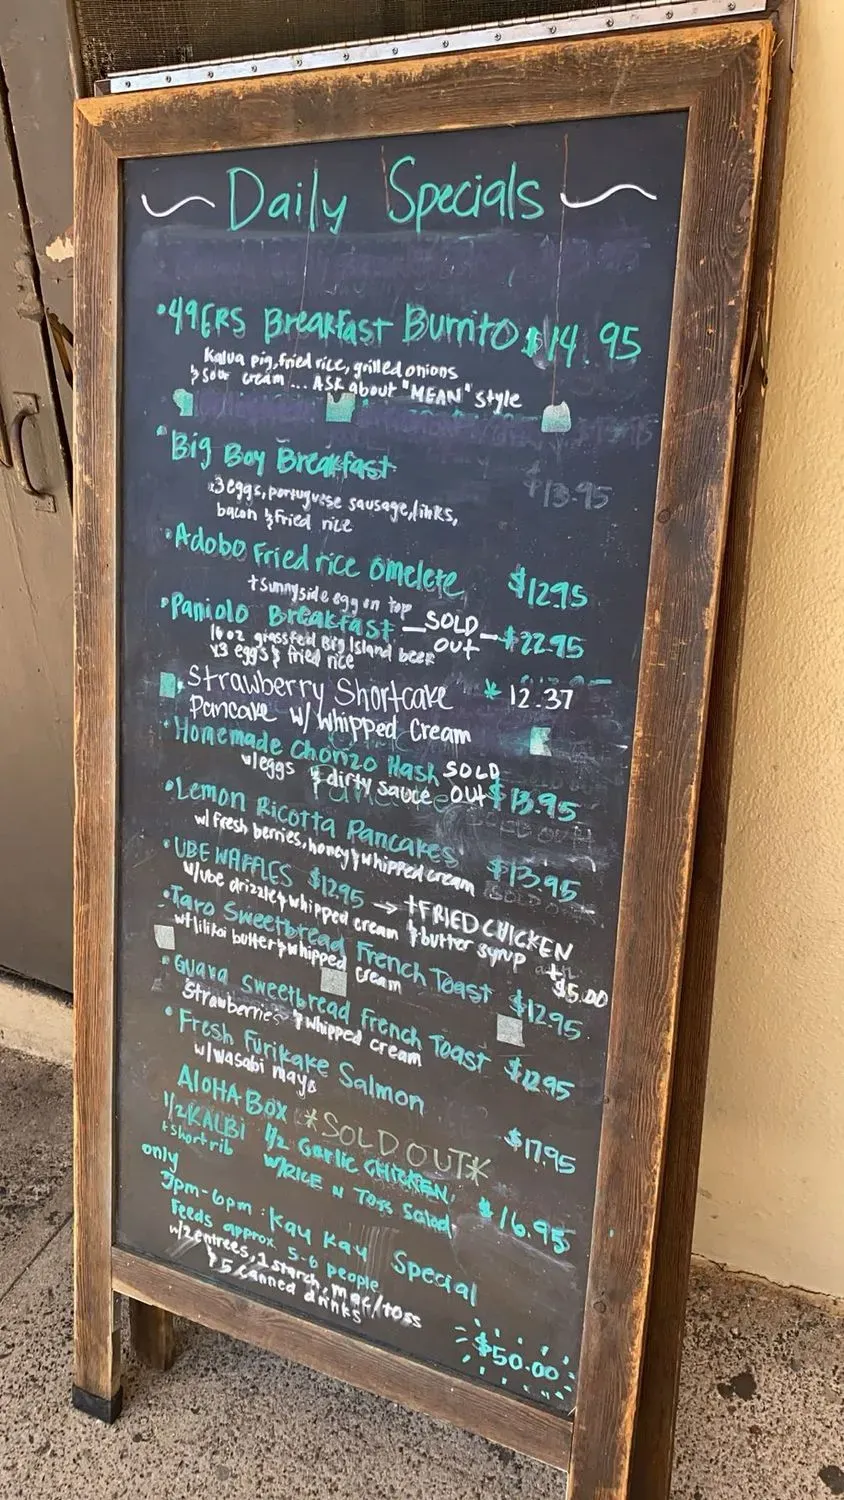 ~ Daily Specials ~
• 49ERS Breakfast Burrito $14.95
Kalua pig, fried rice, grilled onions
& sour cream ... ASK about "MEAN" style
• Big Boy Breakfast $13.95
3 eggs, portuguese sausage, links,
bacon & fried rice
• Adobo Fried rice omelete $12.95
+ sunnyside egg on top
• Paniolo Breakfast — SOLD OUT — $22.95
16 oz grassfed Big Island beef
x3 eggs & fried rice
• Strawberry Shortcake * 12.37
Pancake w/ whipped Cream
• Homemade Chorizo Hash SOLD
w/eggs & dirty sauce OUT $13.95
• Lemon Ricotta Pancakes $13.95
w/ fresh berries, honey & whipped cream
• UBE WAFFLES $12.95 → + FRIED CHICKEN
w/ube drizzle & whipped cream & butter syrup + $5.00
• Taro Sweetbread French Toast $12.95
w/ lilikoi butter & whipped cream
• Guava Sweetbread French Toast $12.95
Strawberries & whipped cream
• Fresh Furikake Salmon $17.95
w/wasabi mayo
ALOHA BOX *SOLD OUT*
1/2 KALBI 1/2 Garlic CHICKEN,
+ short rib W/RICE N Toss Salad $16.95
only
3pm-6pm: Kau Kau Special
Feeds approx. 5-6 people
w/2 entrees, 1 starch, mac/toss
& 5 canned drinks
$50.00